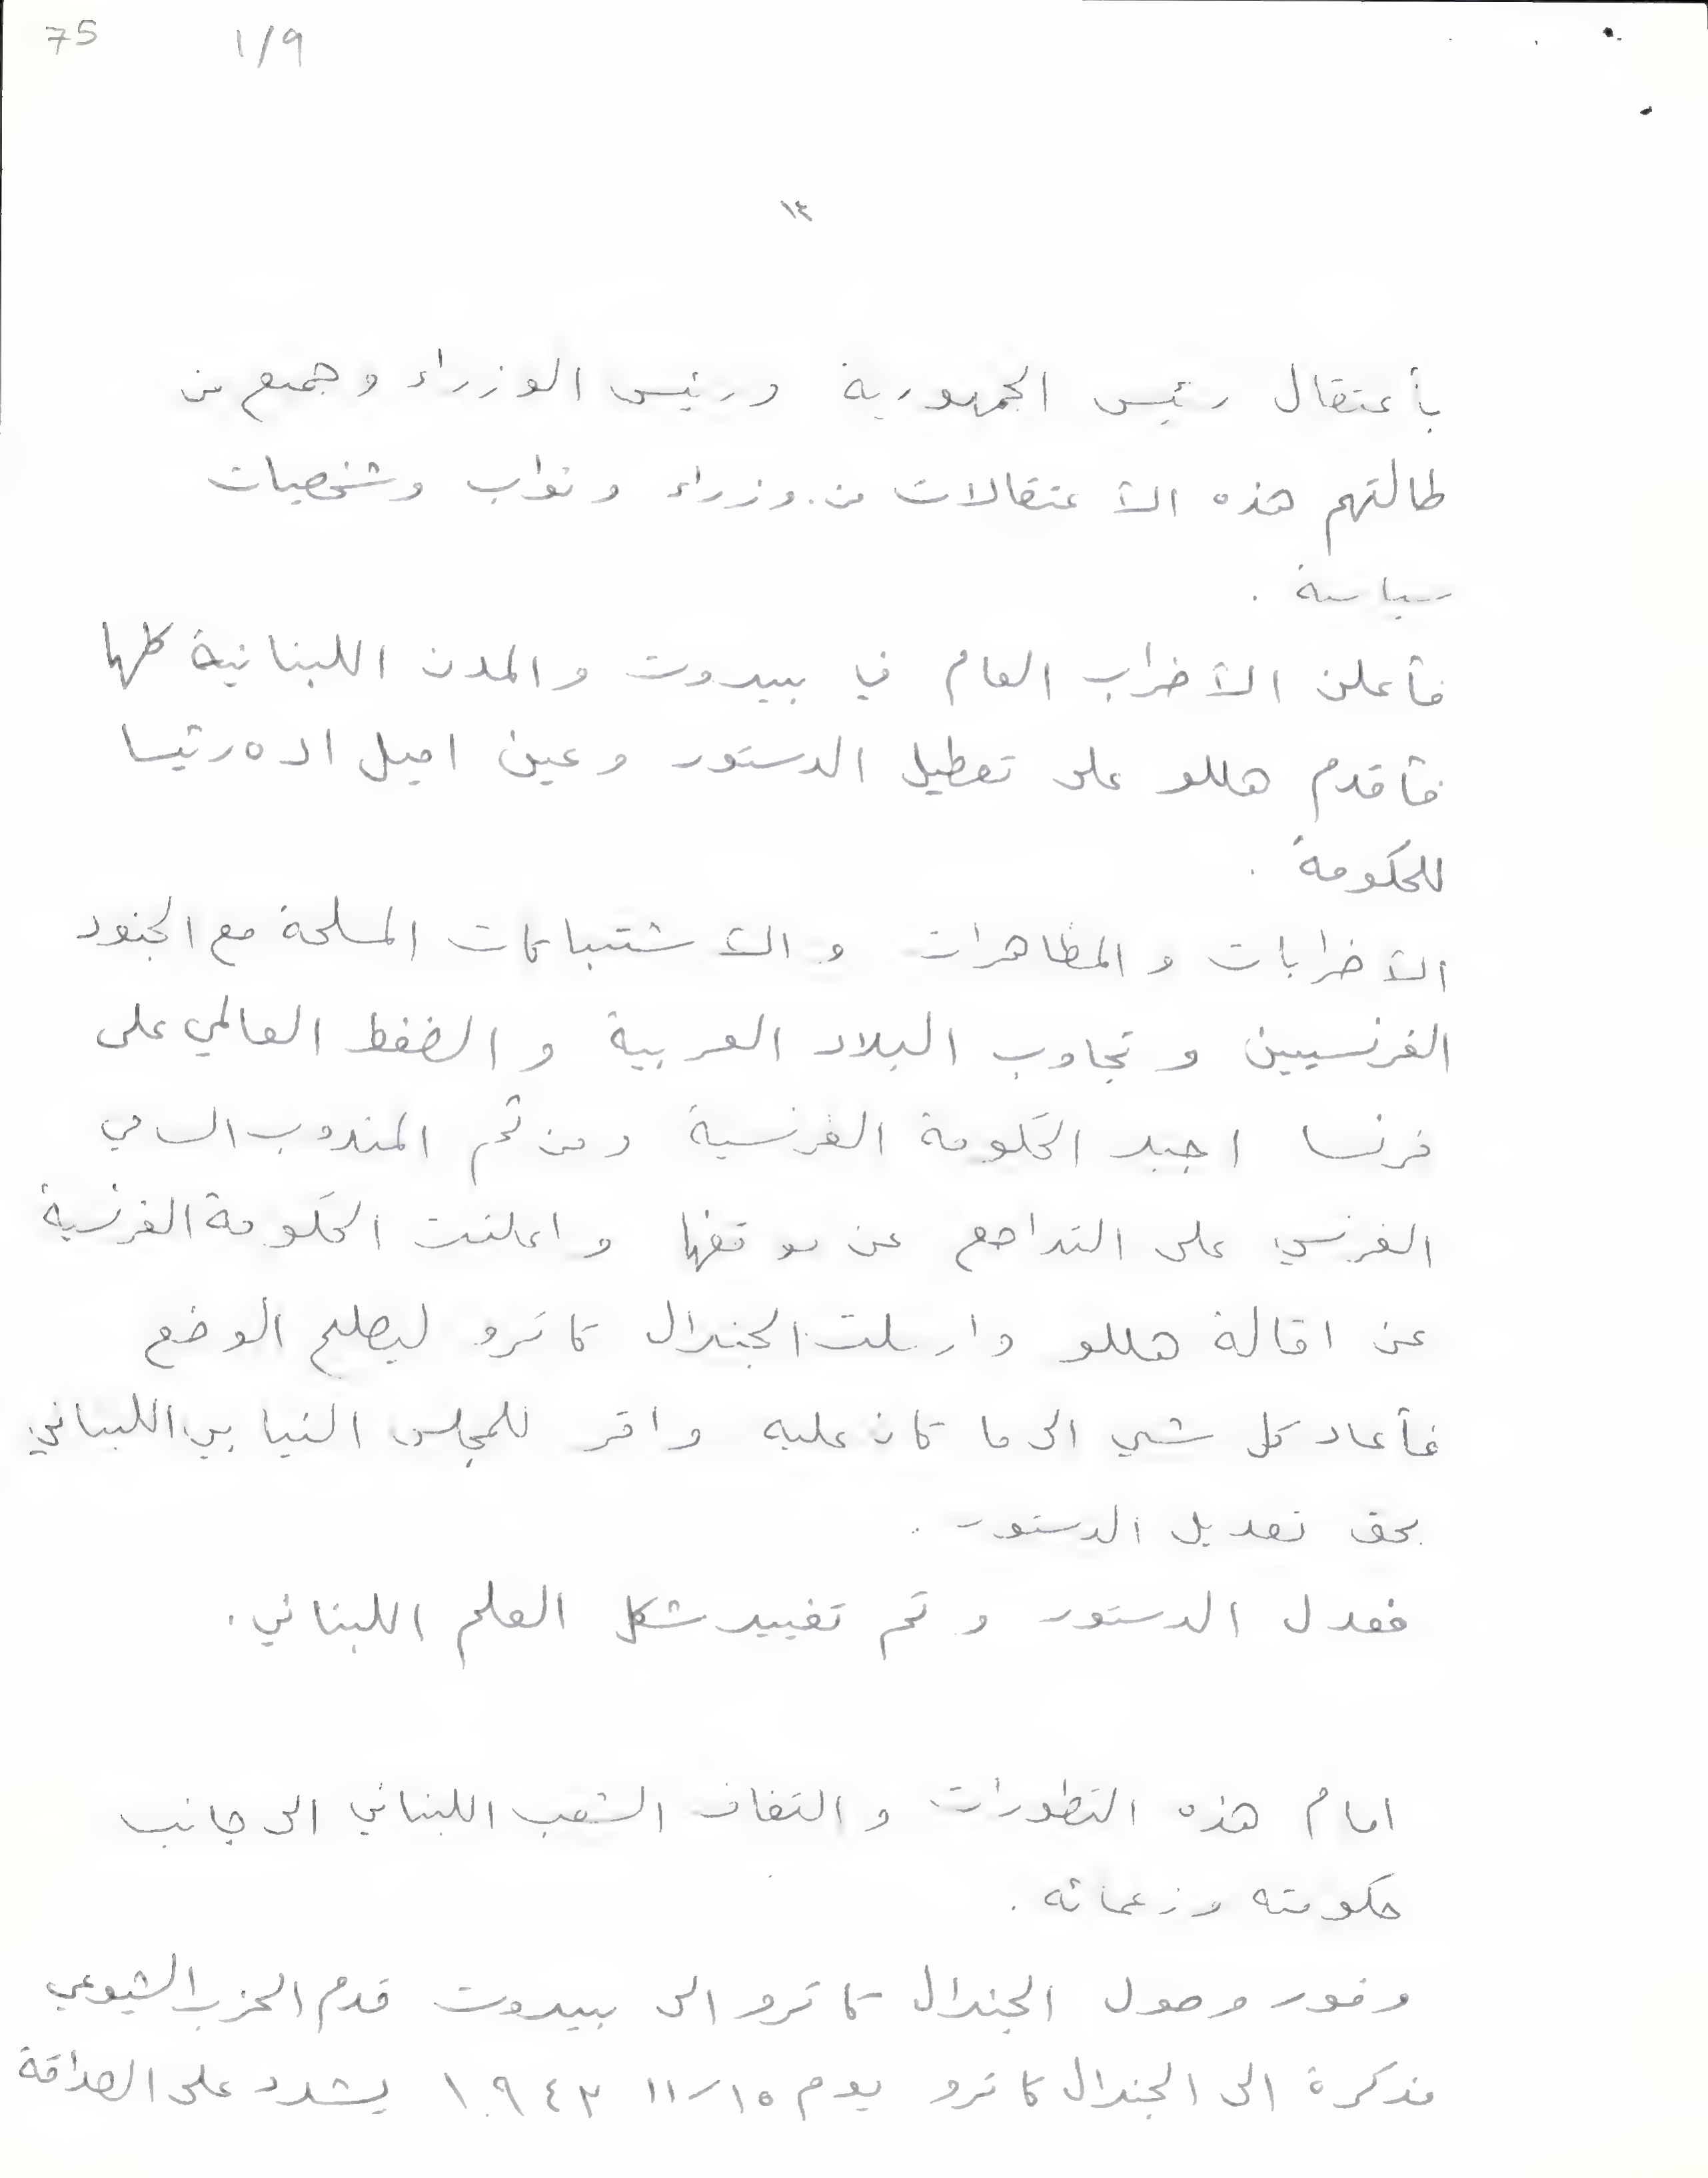 75 1/9
١٣
بأعتقال رئيس الجمهورية ورئيس الوزراء وجميع من
طالتهم هذه الأعتقالات من وزراء ونواب وشخصيات
سياسة .
فأعلن الأضراب العام في بيروت والمدن اللبنانية كلها
فأقدم هللو على تعطيل الدستور وعين اميل اده رئيسا
للحكومة .
الأضرابات والمظاهرات والأشتباكات المسلحة مع الجنود
الفرنسيين وتجاوب البلاد العربية والضغط العالمي على
فرنسا اجبر الحكومة الفرنسية ومن ثم المندوب السامي
الفرنسي على التراجع عن موقفها واعلنت الحكومة الفرنسية
عن اقالة هللو وارسلت الجنرال كاترو ليصلح الوضع
فأعاد كل شي الى ما كان عليه واقر للمجلس النيابي اللبناني
بحق تعديل الدستور .
فعدل الدستور وتم تغيير شكل العلم اللبناني .
امام هذه التطورات والتفاف الشعب اللبناني الى جانب
حكومته وزعمائه .
وفور وصول الجنرال كاترو الى بيروت قدم الحزب الشيوعي
مذكرة الى الجنرال كاترو يوم ١٥/١١ ١٩٤٣ يشدد على الصداقة